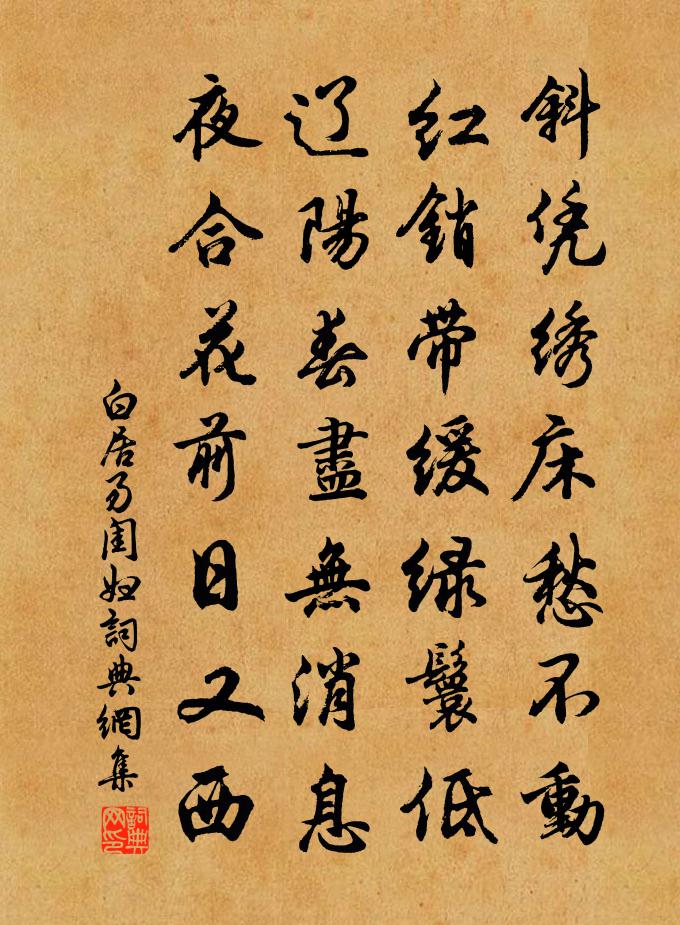 斜凭绣床愁不動
红銷带缓绿鬟低
辽陽春盡無消息
夜合花前日又西
白居易闺妇詞典網集
詞典网印